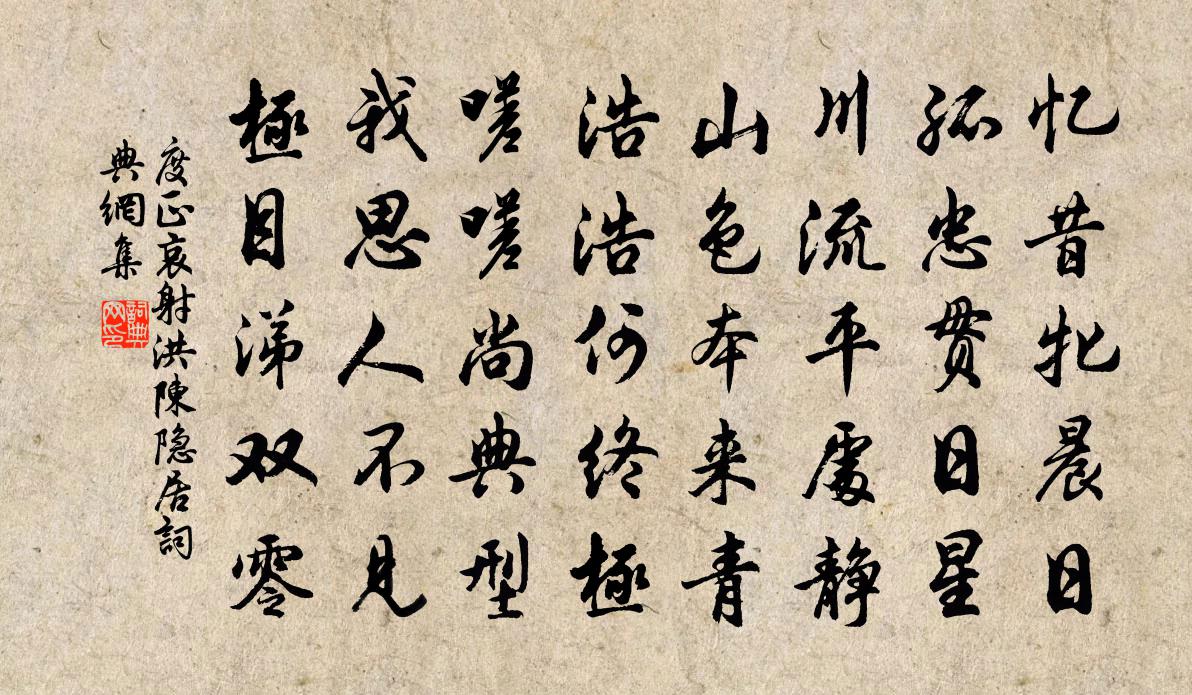 忆昔牝晨日
孤忠贯日星
川流平處静
山色本来青
浩浩何终極
嗟嗟尚典型
我思人不见
極目涕双零
度正哀射洪陳隐居詞
典網集
詞典網印